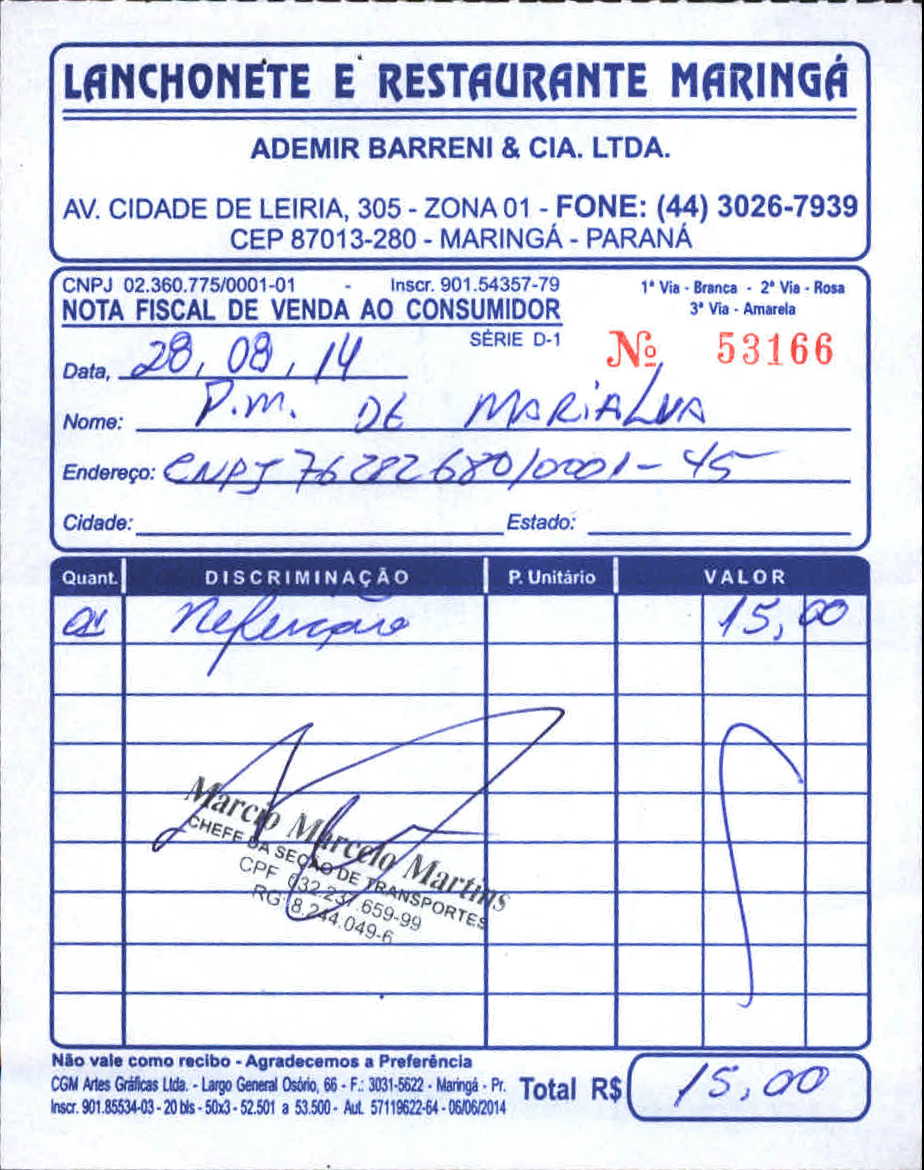 LANCHONETE E RESTAURANTE MARINGÁ
ADEMIR BARRENI & CIA. LTDA.
AV. CIDADE DE LEIRIA, 305 - ZONA 01 - FONE: (44) 3026-7939
CEP 87013-280 - MARINGÁ - PARANÁ
CNPJ 02.360.775/0001-01 - Inscr. 901.54357-79
1ª Via - Branca - 2ª Via - Rosa
3ª Via - Amarela
NOTA FISCAL DE VENDA AO CONSUMIDOR
SÉRIE D-1
Nº 53166
Data, 28, 08, 14
Nome: P.M. DE MARIALVA
Endereço: CNPJ 76282680/0001-45
Cidade: Estado:
Quant. DISCRIMINAÇÃO P. Unitário VALOR
01 Refeição 15,00
Marcio Marcelo Martins
CHEFE DA SEÇÃO DE TRANSPORTES
CPF 032.237.659-99
RG: 8.244.049-6
Não vale como recibo - Agradecemos a Preferência
CGM Artes Gráficas Ltda. - Largo General Osório, 66 - F.: 3031-5622 - Maringá - Pr.
Inscr. 901.85534-03 - 20 bls - 50x3 - 52.501 a 53.500 - Aut. 57119622-64 - 06/06/2014
Total R$ 15,00